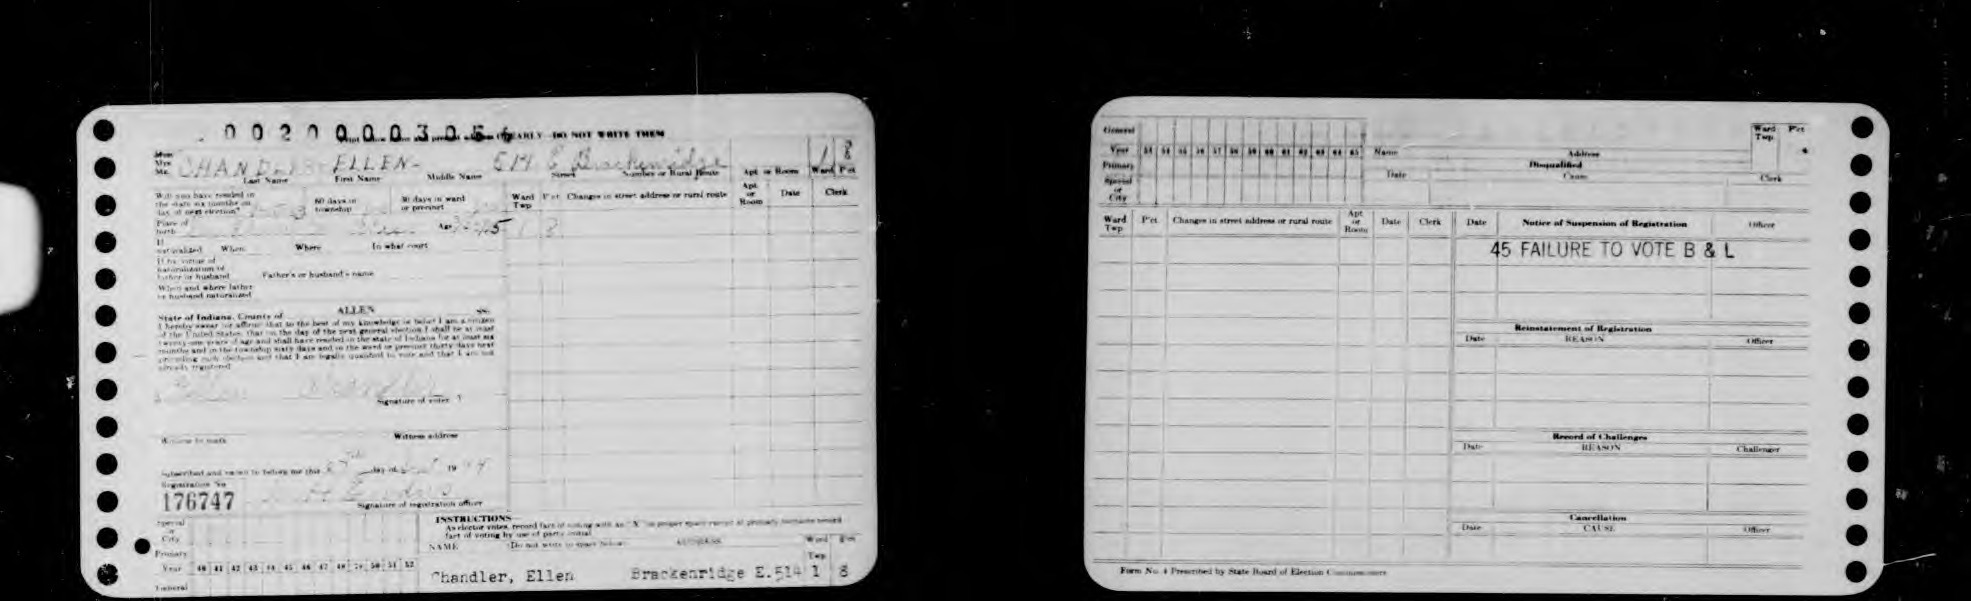 0020000305
EARLY - DO NOT WRITE THEM
Miss
Mrs.
Mr.
CHANDLER ELLEN- 514 E Brackenridge 1 8
Last Name First Name Middle Name Street Number or Rural Route Apt or Room Ward P'ct
Will you have resided in the state six months on day of next election?
60 days in township
30 days in ward or precinct
Ward Twp P'ct Changes in street address or rural route Apt or Room Date Clerk
Place of birth
Age
1 8
If naturalized When Where In what court
If by virtue of naturalization of father or husband Father's or husband's name
When and where father or husband naturalized
State of Indiana, County of ALLEN ss:
I hereby swear or affirm that to the best of my knowledge or belief I am a citizen
of the United States, that on the day of the next general election I shall be at least
twenty-one years of age and shall have resided in the state of Indiana for at least six
months and in the township sixty days and in the ward or precinct thirty days next
preceding such election and that I am legally qualified to vote and that I am not
already registered
Ellen Chandler
Signature of voter
Witness to mark Witness address
Subscribed and sworn to before me this day of 19
Registration No
176747
Signature of registration officer
Special or City
Primary
Year 40 41 42 43 44 45 46 47 48 49 50 51 52
General
INSTRUCTIONS
As elector votes, record fact of voting with an "X" in proper space except at primary elections record
fact of voting by use of party initial
NAME (Do not write in space below) ADDRESS Ward Twp P'ct
Chandler, Ellen Brackenridge E.514 1 8
General
Year 53 54 55 56 57 58 59 60 61 62 63 64 65
Primary
Special or City
Name Address
Ward Twp P'ct
Disqualified
Date Cause Clerk
Ward Twp P'ct Changes in street address or rural route Apt or Room Date Clerk
Date Notice of Suspension of Registration Officer
45 FAILURE TO VOTE B & L
Reinstatement of Registration
Date REASON Officer
Record of Challenges
Date REASON Challenger
Cancellation
Date CAUSE Officer
Form No. 4 Prescribed by State Board of Election Commissioners